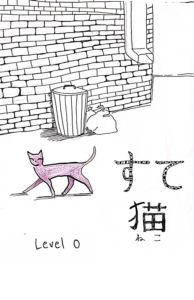 すて
猫
ねこ
Level 0